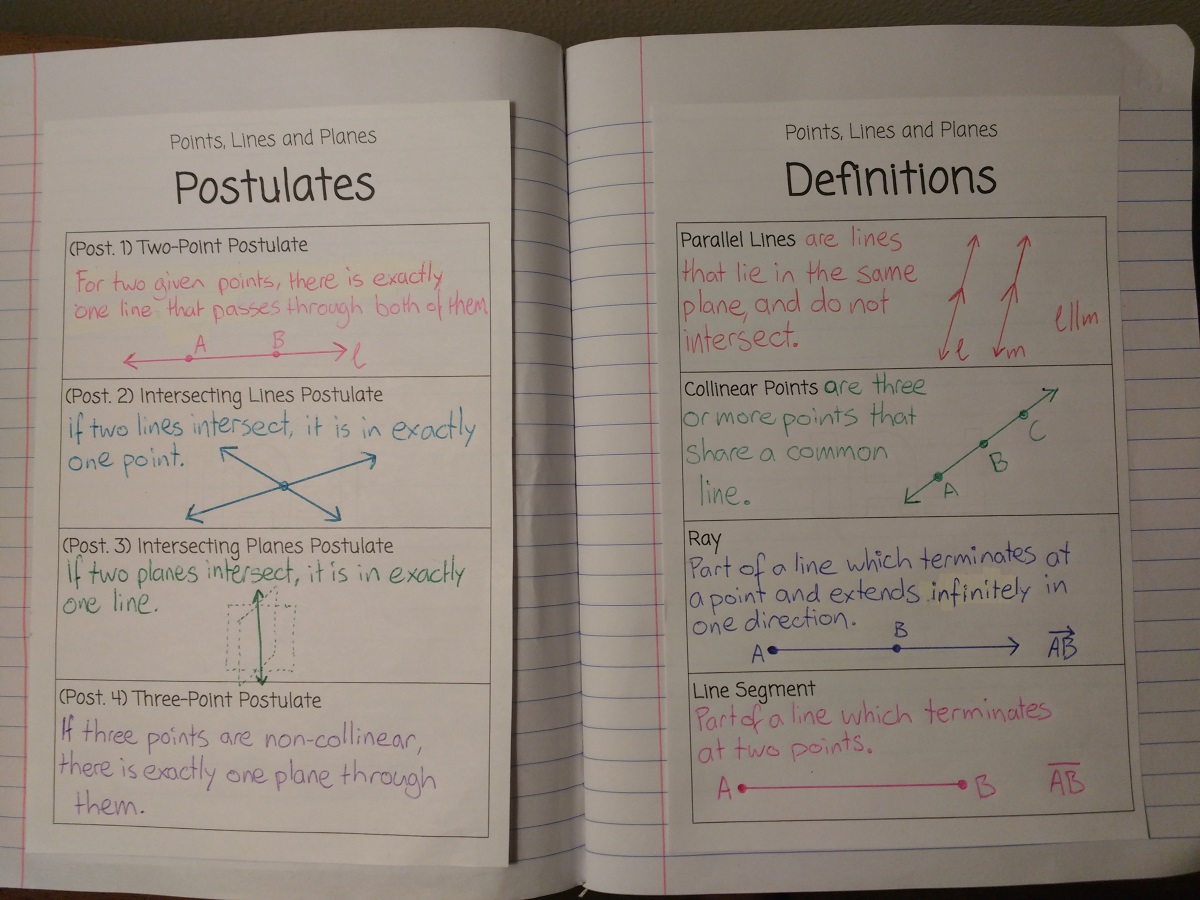 Points, Lines and Planes
Postulates
(Post. 1) Two-Point Postulate
For two given points, there is exactly
one line that passes through both of them
A B ℓ
(Post. 2) Intersecting Lines Postulate
if two lines intersect, it is in exactly
one point.
(Post. 3) Intersecting Planes Postulate
If two planes intersect, it is in exactly
one line.
(Post. 4) Three-Point Postulate
If three points are non-collinear,
there is exactly one plane through
them.
Points, Lines and Planes
Definitions
Parallel Lines are lines
that lie in the same
plane, and do not
intersect.
ℓ m ℓ||m
Collinear Points are three
or more points that
share a common
line.
A B C
Ray
Part of a line which terminates at
a point and extends infinitely in
one direction.
A B AB
Line Segment
Part of a line which terminates
at two points.
A B AB